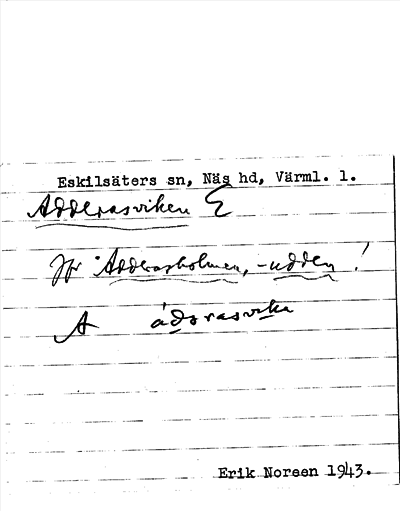 Eskilsäters sn, Näs hd, Värml. l.
Adderasviken
Jfr Adderasholmen, -udden !
A ádərasvika
Erik Noreen 1943.